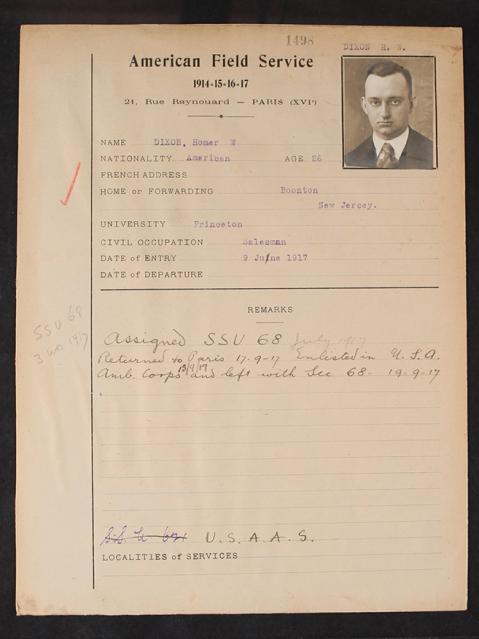 1498
DIXON H. W.
American Field Service
1914-15-16-17
21, Rue Raynouard — PARIS (XVIe)
NAME DIXON, Homer W
NATIONALITY American AGE 26
FRENCH ADDRESS
HOME or FORWARDING Boonton
New Jersey.
UNIVERSITY Princeton
CIVIL OCCUPATION Salesman
DATE of ENTRY 9 Ju/ne 1917
DATE of DEPARTURE
REMARKS
SSU 68
3 1917
Assigned SSU 68 July 1917
Returned to Paris 17-9-17 Enlisted in U.S.A.
Amb. Corps 13/9/17 and left with Sec 68- 19-9-17
U.S.A.A.S.
LOCALITIES of SERVICES